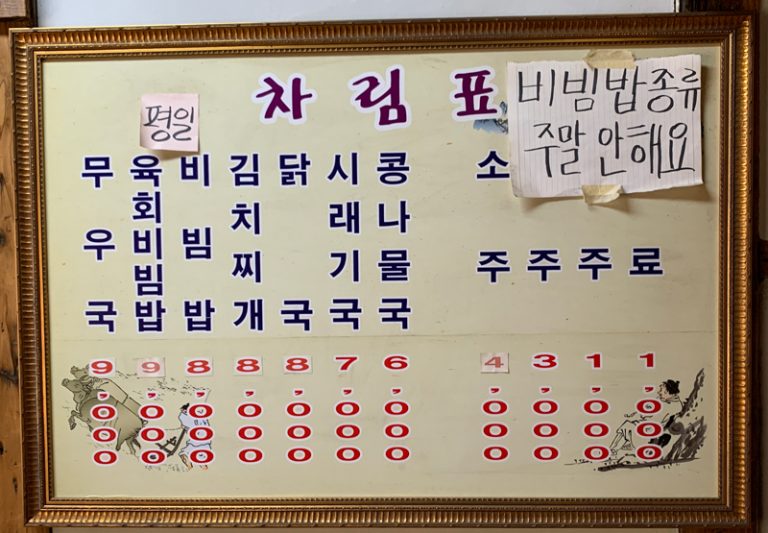 차림표
비빔밥종류
주말 안해요
평일
무우국
육회비빔밥
비빔밥
김치찌개
닭국
시래기국
콩나물국
소주
주
주
료
9,000
9,000
8,000
8,000
8,000
7,000
6,000
4,000
3,000
1,000
1,000